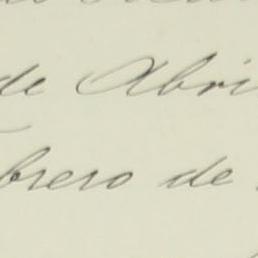 de Abri
brero de